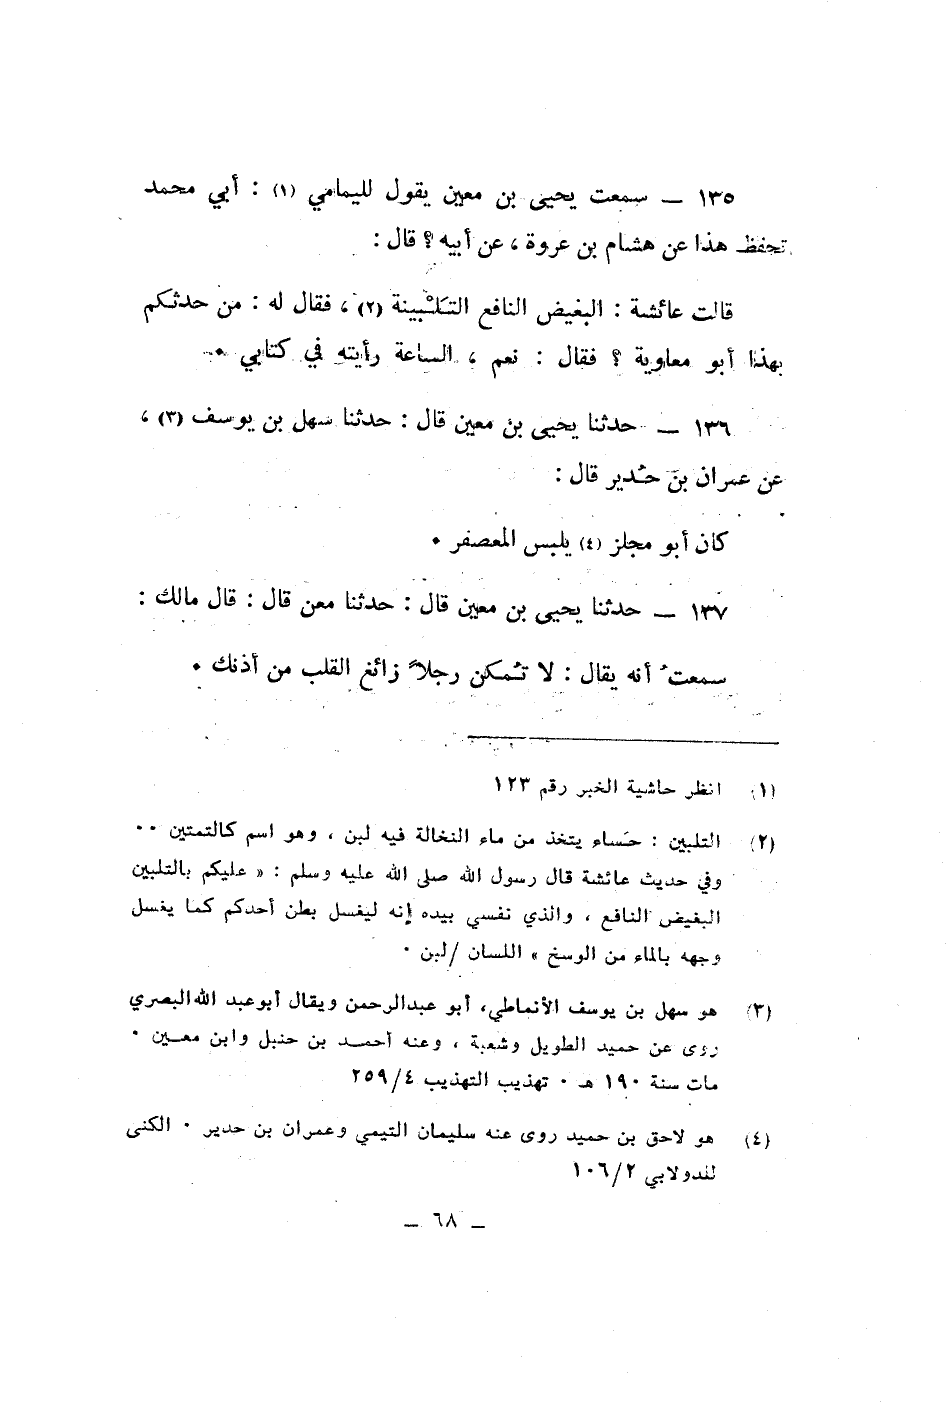 ١٣٥ ــ سمعت يحيى بن معين يقول لليمامي (١) : أبي محمد
تحفظ هذا عن هشام بن عروة ، عن أبيه ؟ قال :
قالت عائشة : البغيض النافع التَلْبينة (٢) ، فقال له : من حدثكم
بهذا أبو معاوية ؟ فقال : نعم ، الساعة رأيته في كتابي .
١٣٦ ــ حدثنا يحيى بن معين قال : حدثنا سهل بن يوسف (٣) ،
عن عمران بن حُدير قال :
كان أبو مجلز (٤) يلبس المعصفر .
١٣٧ ــ حدثنا يحيى بن معين قال : حدثنا معن قال : قال مالك :
سمعتُ أنه يقال : لا تُمكن رجلاً زائغ القلب من أذنك .
(١) انظر حاشية الخبر رقم ١٢٣
(٢) التلبين : حَساء يتخذ من ماء النخالة فيه لبن ، وهو اسم كالتمتين ..
وفي حديث عائشة قال رسول الله صلى الله عليه وسلم : « عليكم بالتلبين
البغيض النافع ، والذي نفسي بيده إنه ليغسل بطن أحدكم كما يغسل
وجهه بالماء من الوسخ » اللسان /لبن .
(٣) هو سهل بن يوسف الأنماطي، أبو عبدالرحمن ويقال أبوعبد الله البصري
روى عن حميد الطويل وشعبة ، وعنه أحمـد بن حنبل وابن معـين .
مات سنة ١٩٠ هـ . تهذيب التهذيب ٢٥٩/٤
(٤) هو لاحق بن حميد روى عنه سليمان التيمي وعمران بن حدير . الكنى
للدولابي ١٠٦/٢
ــ ٦٨ ــ